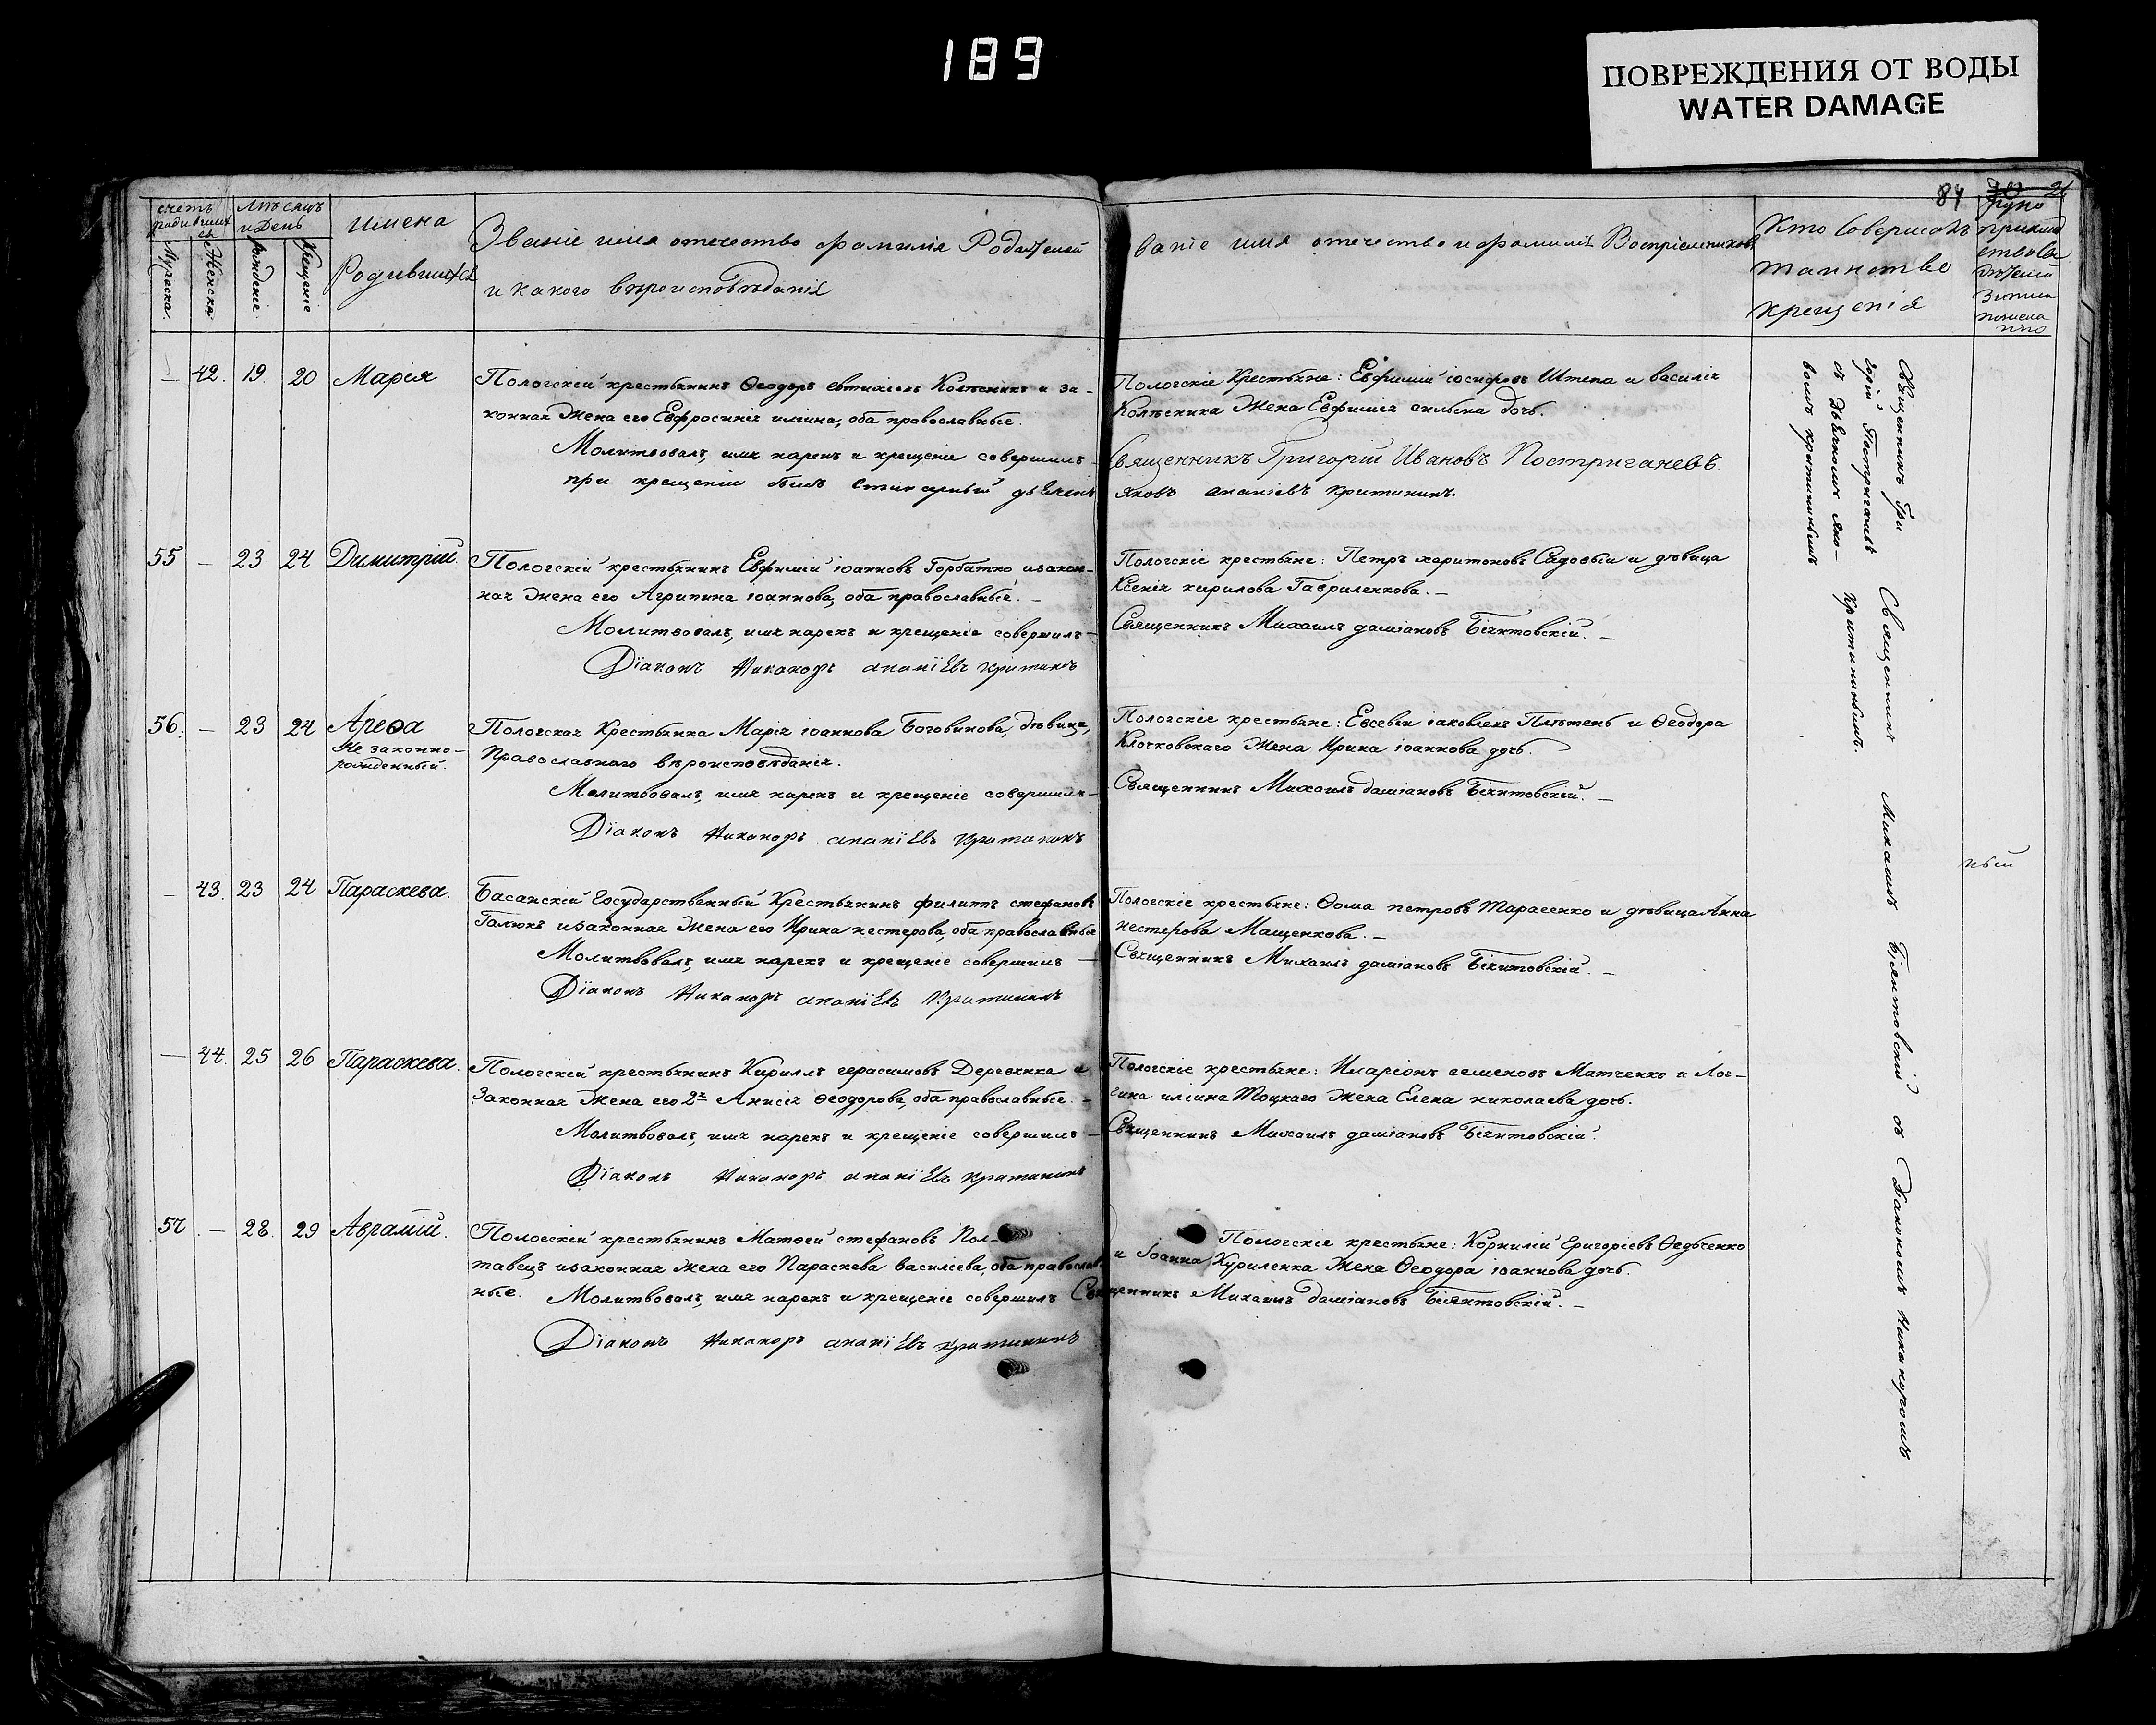 189
ПОВРЕЖДЕНИЯ ОТ ВОДЫ
WATER DAMAGE
84
счетъ родившихся
Мужеска.
Женска
Мѣсяцъ и День
Рожденіе.
Крещеніе
Имена Родившихся
Званіе имя отечество фамилія Родителей
и какого вѣроисповѣданія
Званіе имя отечество и фамилія Воспріемниковъ
Кто Совершалъ
таинство
крещенія
Руко
приклад
ство
Записи
— 42. 19. 20 Марія
Пологскій крестьянинъ Ѳеодоръ евтихіевъ Колѣсникъ и за-
конная Жена его Евфросинія иліина, оба православные.
Молитвовалъ, имя нарекъ и крещеніе совершилъ
при крещеніи былъ дьячекъ
Пологскіе Крестьяне: Евфимій іосифовъ Штепа и василія
Колѣсника Жена Евфимія дочь.
Священникъ Григорій Ивановъ Постригачевъ.
Яковъ ананіевъ критининъ.
55 — 23 24 Димитрій.
Пологскій крестьянинъ Евфимій іоанновъ Горбатко и закон-
ная Жена его Агрипина іоаннова, оба православные. —
Молитвовалъ, имя нарекъ и крещеніе совершилъ —
Діаконъ Никаноръ ананіевъ критининъ
Пологскіе крестьяне: Петръ харитоновъ Садовый и дѣвица
Ксенія кирилова Гавриленкова. —
Священникъ Михаилъ даміановъ Біянтовскій. —
56. — 23 24 Ареѳа
Не законно-
рожденный.
Пологская Крестьянка Марія іоаннова Боговинова, дѣвица,
Православнаго вѣроисповѣданія.
Молитвовалъ, имя нарекъ и крещеніе совершилъ —
Діаконъ Никаноръ ананіевъ критининъ
Пологскіе крестьяне: Евсевій іаковлевъ Плѣтень и Ѳеодора
Клочковскаго Жена Ирина іоаннова дочь.
Священникъ Михаилъ даміановъ Біянтовскій. —
— 43. 23 24 Параскева.
Басанскій Государственный Крестьянинъ филиппъ стефановъ
Галюкъ и законная Жена его Ирина нестерова, оба православные
Молитвовалъ, имя нарекъ и крещеніе совершилъ —
Діаконъ Никаноръ ананіевъ Критининъ
Пологскіе крестьяне: Ѳома петровъ Тарасенко и дѣвица Анна
нестерова Мащенкова. —
Священникъ Михаилъ даміановъ Біянтовскій. —
— 44. 25 26 Параскева.
Пологскій крестьянинъ Кириллъ герасимовъ Деревянка и
Законная Жена его 2я Анисія ѳеодорова, оба православные. —
Молитвовалъ, имя нарекъ и крещеніе совершилъ —
Діаконъ Никаноръ ананіевъ критининъ
Пологскіе крестьяне: Иларіонъ семеновъ Матченко и Лог-
гина иліина Тоцкаго Жена Елена николаева дочь.
Священникъ Михаилъ даміановъ Біянтовскій.
57 — 28. 29 Аврамій.
Пологскій крестьянинъ Матѳей стефановъ Пол-
тавецъ и законная Жена его Параскева василіева, оба православ-
ные. Молитвовалъ, имя нарекъ и крещеніе совершилъ Священникъ Михаилъ даміановъ Біянтовскій. —
Діаконъ Никаноръ ананіевъ критининъ
Пологскіе крестьяне: Корнилій Григоріевъ Ѳедьченко
и Іоанна Куриленка Жена Ѳеодора іоаннова дочь.
Священникъ Гри
горій Постригачевъ
съ Дьячкомъ Яко-
вомъ критининымъ
Священникъ Михаилъ Біянтовскій съ Діакономъ Никаноромъ
Критининымъ.
ный